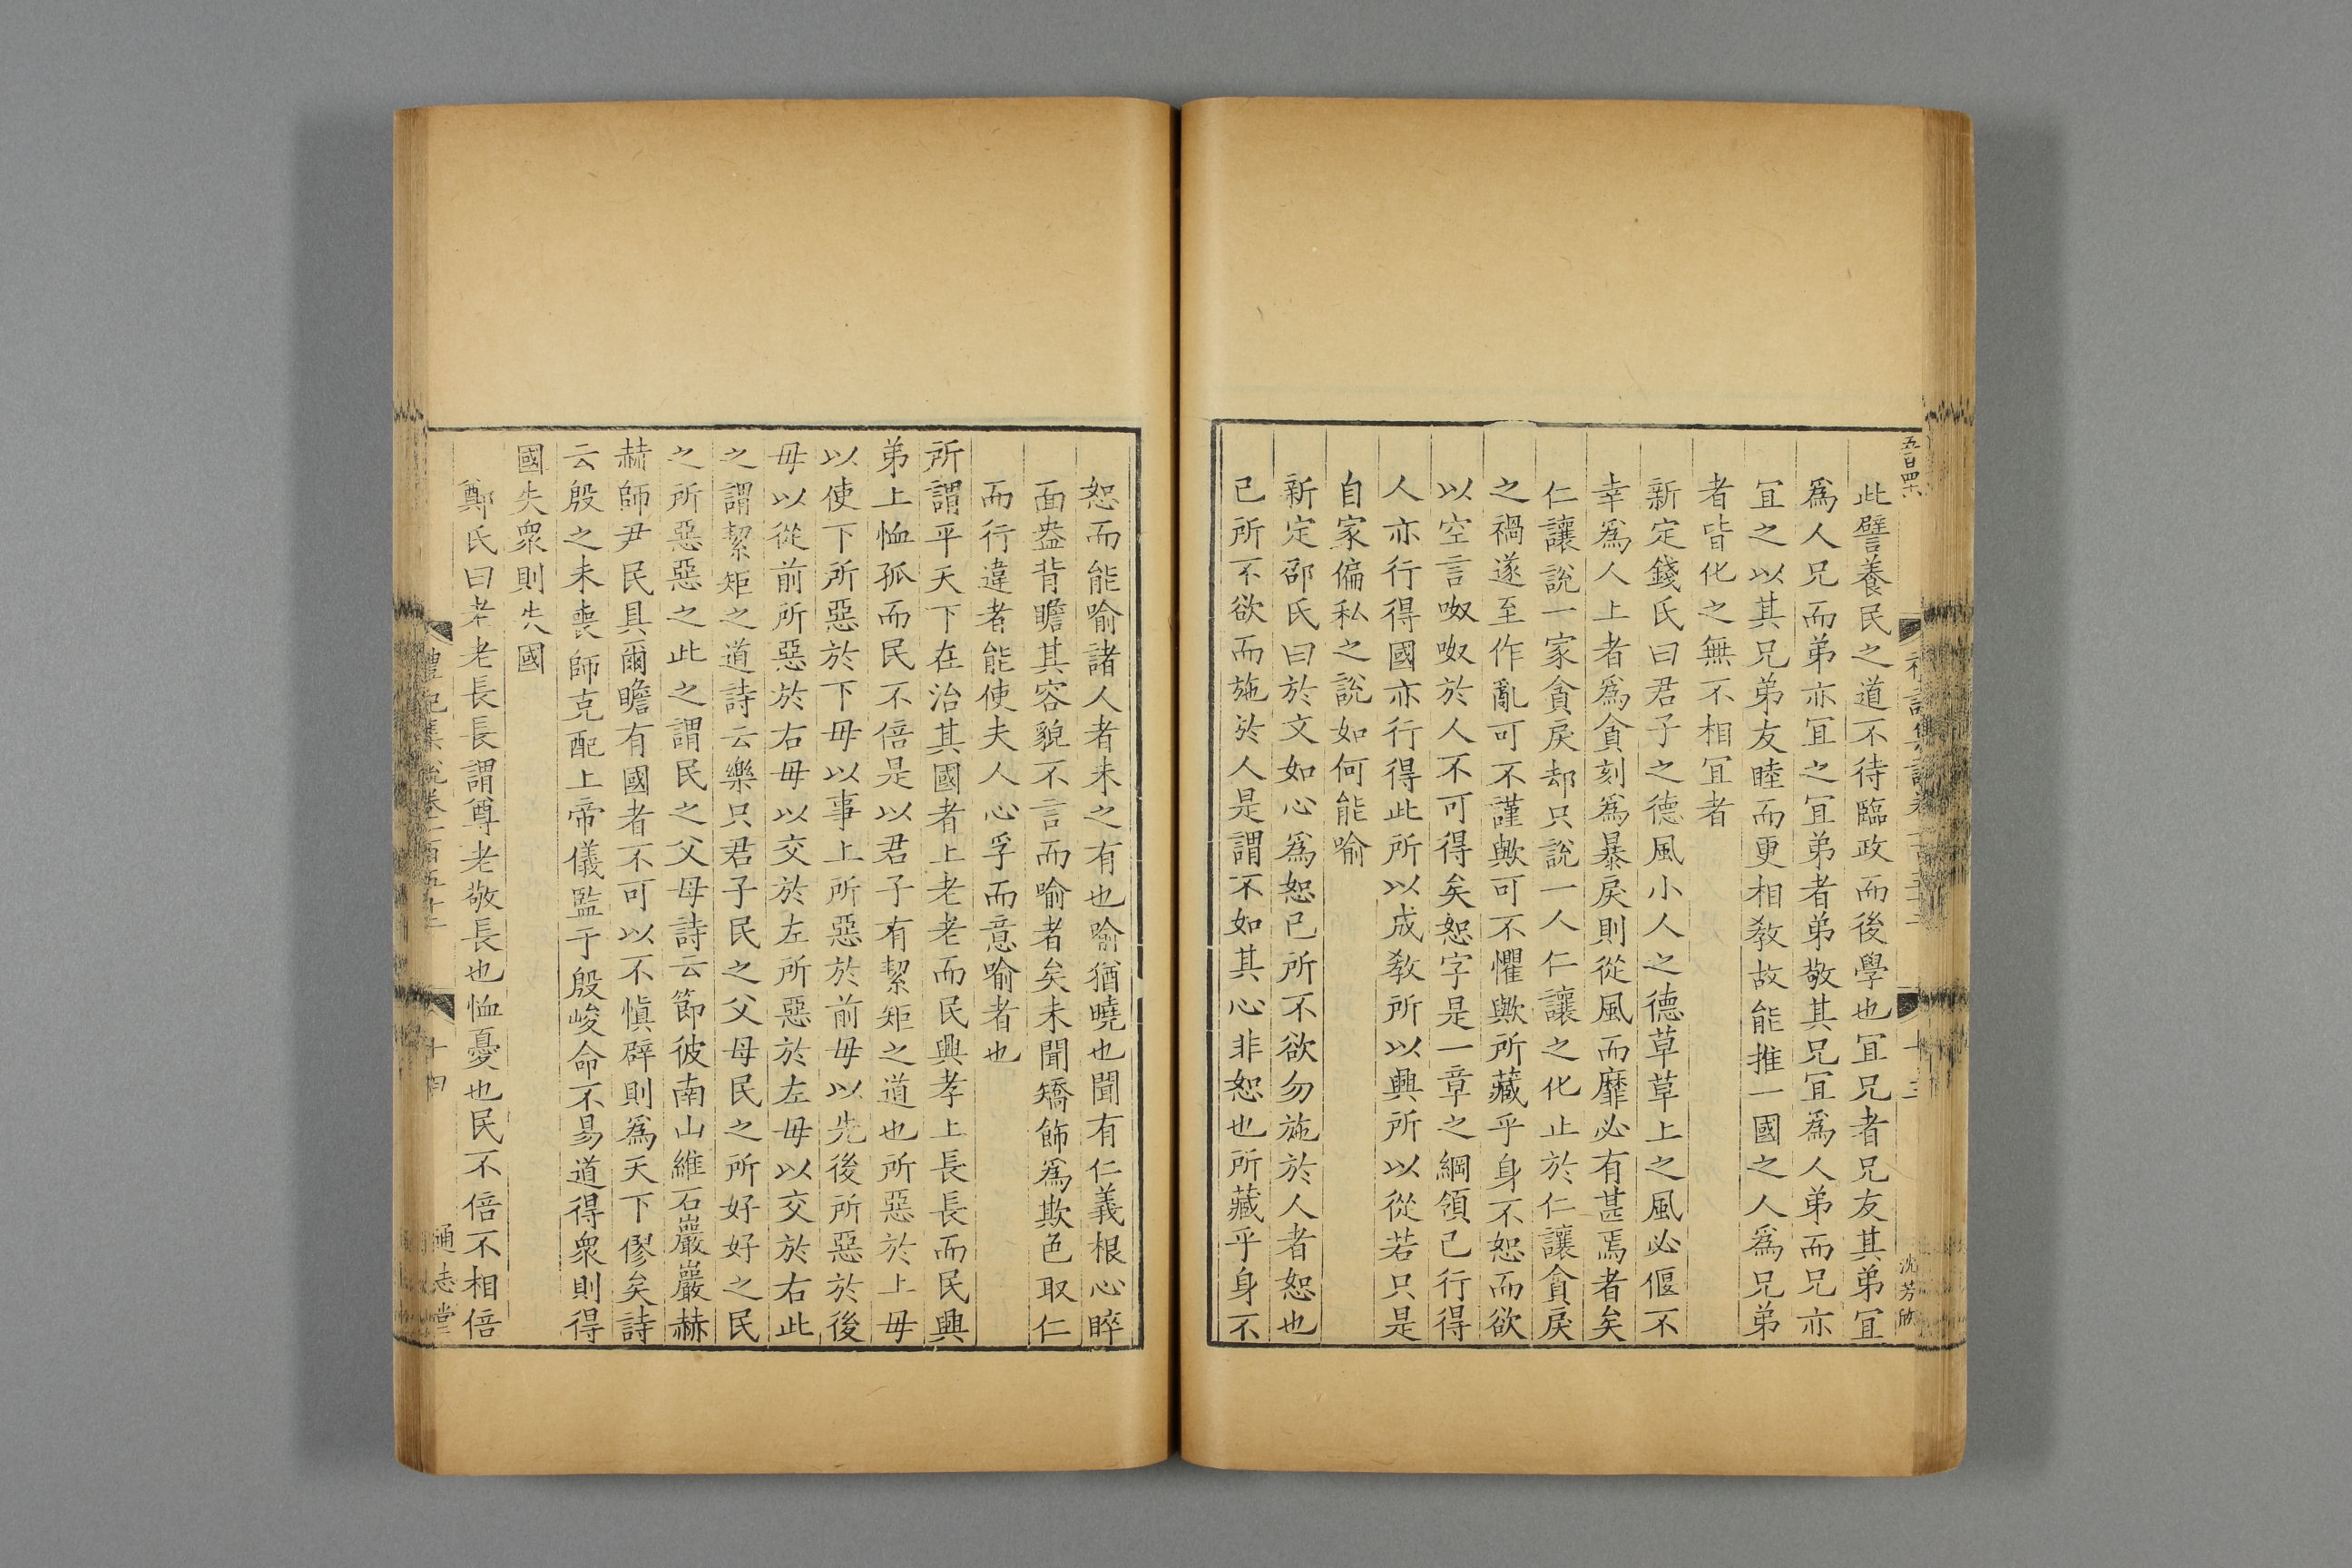 此譬養民之道不待臨政而後學也冝兄者兄友其弟冝
爲人兄而弟亦冝之冝弟者弟敬其兄冝爲人弟而兄亦
冝之以其兄弟友睦而更相敎故能推一國之人爲兄弟
者皆化之無不相冝者
新定錢氏曰君子之德風小人之德草草上之風必偃不
幸爲人上者爲貪刻爲暴戾則從風而靡必有甚焉者矣
仁讓說一家貪戾却只說一人仁讓之化止於仁讓貪戾
之禍遂至作亂可不謹歟可不懼歟所藏乎身不恕而欲
以空言呶呶於人不可得矣恕字是一章之綱領己行得
人亦行得國亦行得此所以成敎所以興所以從若只是
自家偏私之說如何能喻
新定邵氏曰於文如心爲恕已所不欲勿施於人者恕也
己所不欲而施於人是謂不如其心非恕也所藏乎身不
恕而能喻諸人者未之有也喻猶曉也聞有仁義根心睟
面盎背瞻其容貌不言而喻者矣未聞矯飾爲欺色取仁
而行違者能使夫人心孚而意喻者也
所謂平天下在治其國者上老老而民興孝上長長而民興
弟上恤孤而民不倍是以君子有絜矩之道也所惡於上毋
以使下所惡於下毋以事上所惡於前毋以先後所惡於後
毋以從前所惡於右毋以交於左所惡於左毋以交於右此
之謂絜矩之道詩云樂只君子民之父母民之所好好之民
之所惡惡之此之謂民之父母詩云節彼南山維石巖巖赫
赫師尹民具爾瞻有國者不可以不愼辟則爲天下僇矣詩
云殷之未喪師克配上帝儀監于殷峻命不易道得衆則得
國失衆則失國
鄭氏曰老老長長謂尊老敬長也恤憂也民不倍不相倍
禮記集說卷一百五十二
十四
通志堂